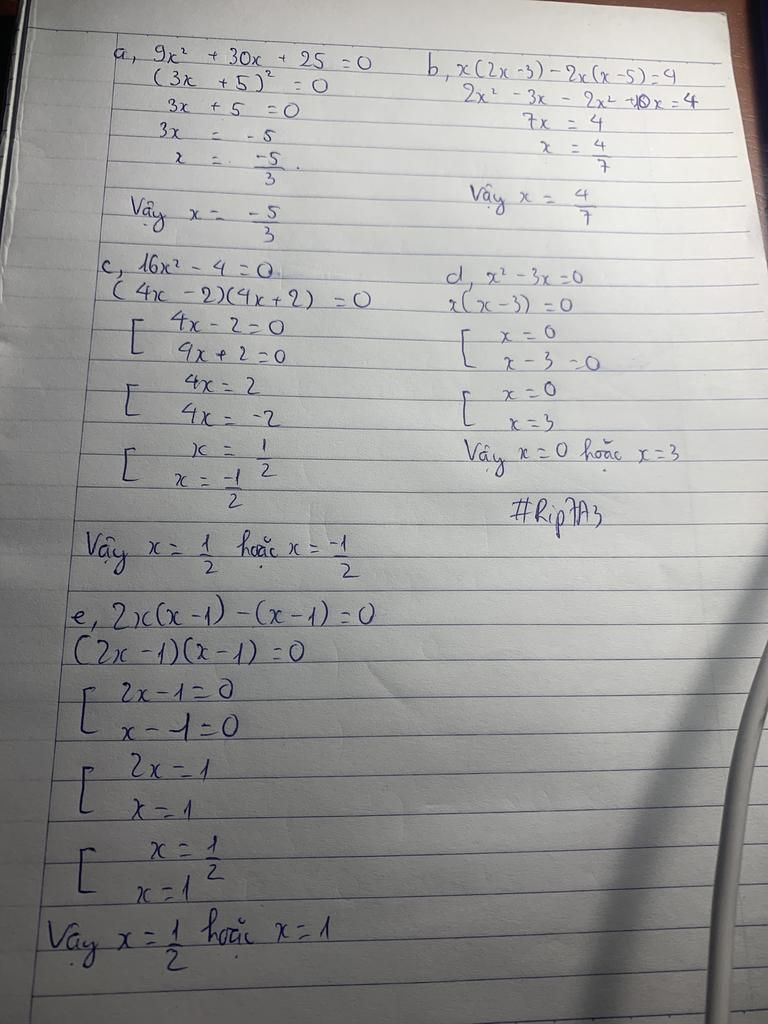 a, 9x² + 30x + 25 = 0
(3x + 5)² = 0
3x + 5 = 0
3x = -5
x = -5/3.
Vậy x = -5/3
b, x(2x-3) - 2x(x-5) = 4
2x² - 3x - 2x² + 10x = 4
7x = 4
x = 4/7
Vậy x = 4/7
c, 16x² - 4 = 0
(4x - 2)(4x + 2) = 0
[ 4x - 2 = 0
4x + 2 = 0
[ 4x = 2
4x = -2
[ x = 1/2
x = -1/2
Vậy x = 1/2 hoặc x = -1/2
d, x² - 3x = 0
x(x-3) = 0
[ x = 0
x - 3 = 0
[ x = 0
x = 3
Vậy x = 0 hoặc x = 3
#Rip7A3
e, 2x(x-1) - (x-1) = 0
(2x-1)(x-1) = 0
[ 2x - 1 = 0
x - 1 = 0
[ 2x = 1
x = 1
[ x = 1/2
x = 1
Vậy x = 1/2 hoặc x = 1